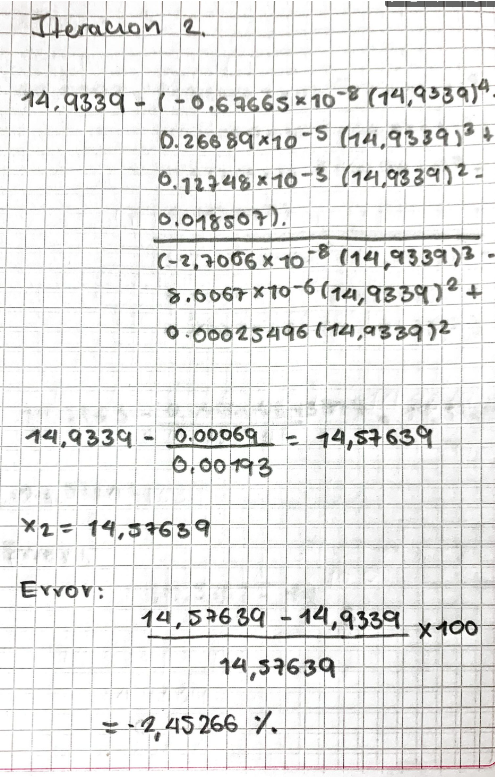 Iteracion 2.
14,9339 - (-0.67665×10-8 (14,9339)4-
0.26689×10-5 (14,9339)3 +
0.12748×10-3 (14,9339)2 -
0.018507).
(-2,7066×10-8 (14,9339)3 -
8.0067×10-6 (14,9339)2 +
0.00025496 (14,9339)2
14,9339 - 0.00069 = 14,57639
0,00193
x2 = 14,57639
Error:
14,57639 - 14,9339 ×100
14,57639
= -2,45266 %.